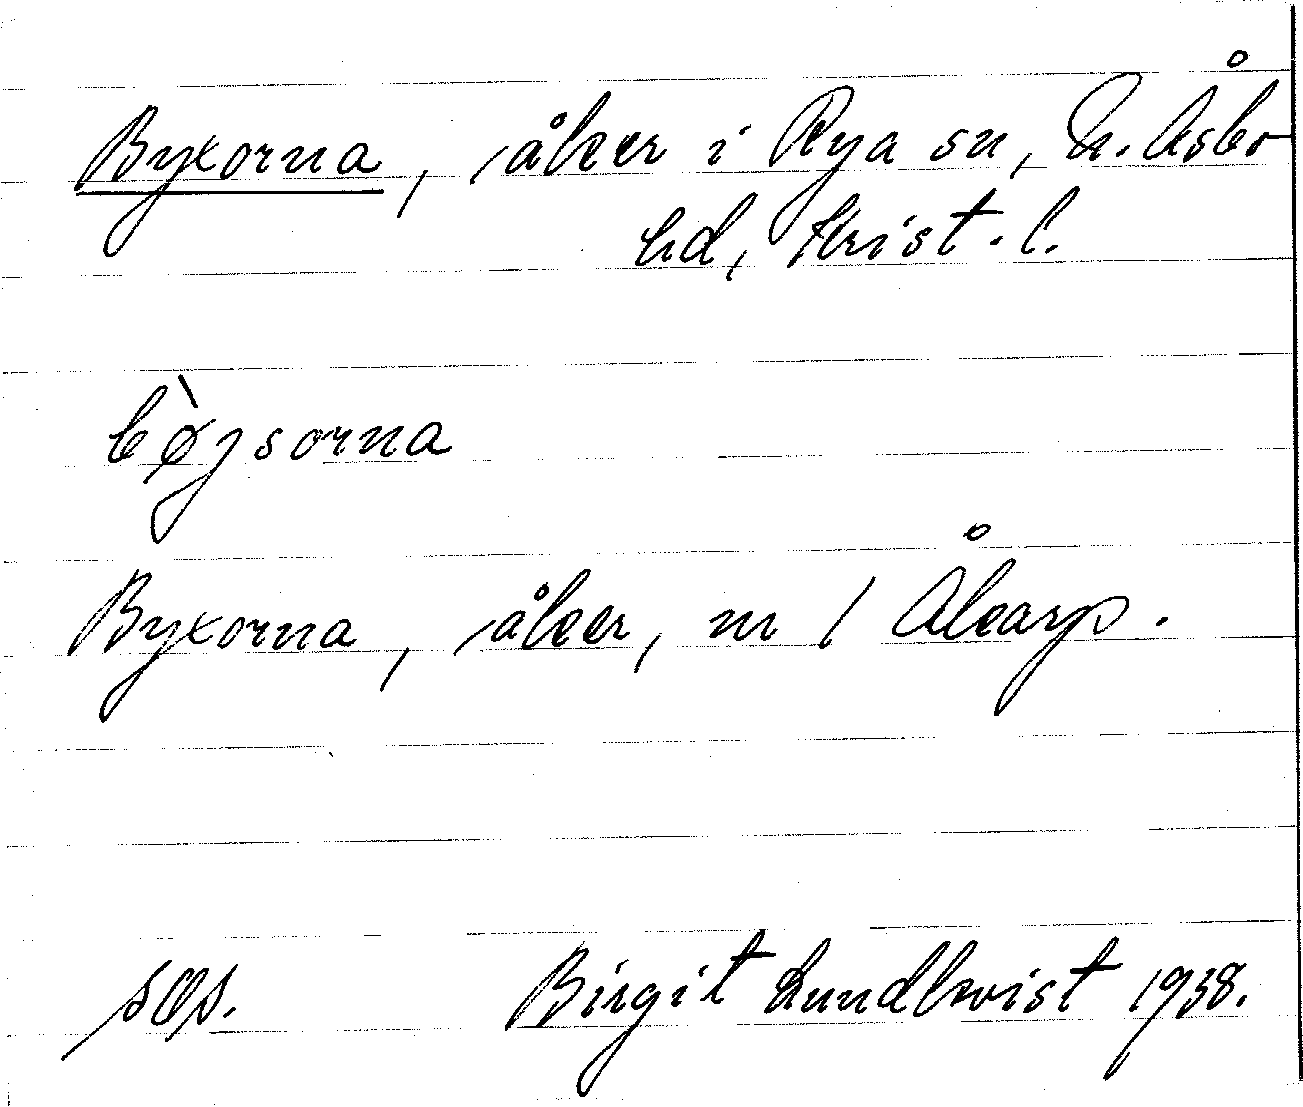 Byxorna, åker i Rya sn, N. Åsbo
hd, Krist. l.
bø̀jsorna
Byxorna, åker, nr 1 Åkarp.
Birgit Lundkvist 1938.